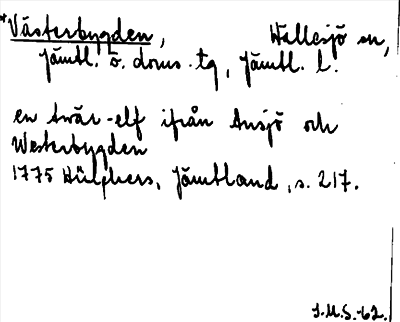 *Västerbygden, Hällesjö sn,
Jämtl. ö. doms.tg, Jämtl. l.
en twär-elf ifrån Ansjö och
Westerbygden
1775 Hülphers, Jämtland, s. 217.
J.M.S.-62.